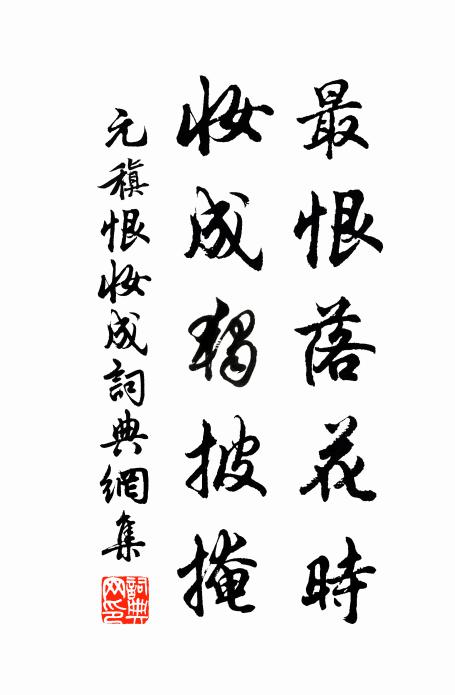 最恨落花時
妝成獨披掩
元稹恨妝成詞典網集
詞典
网印